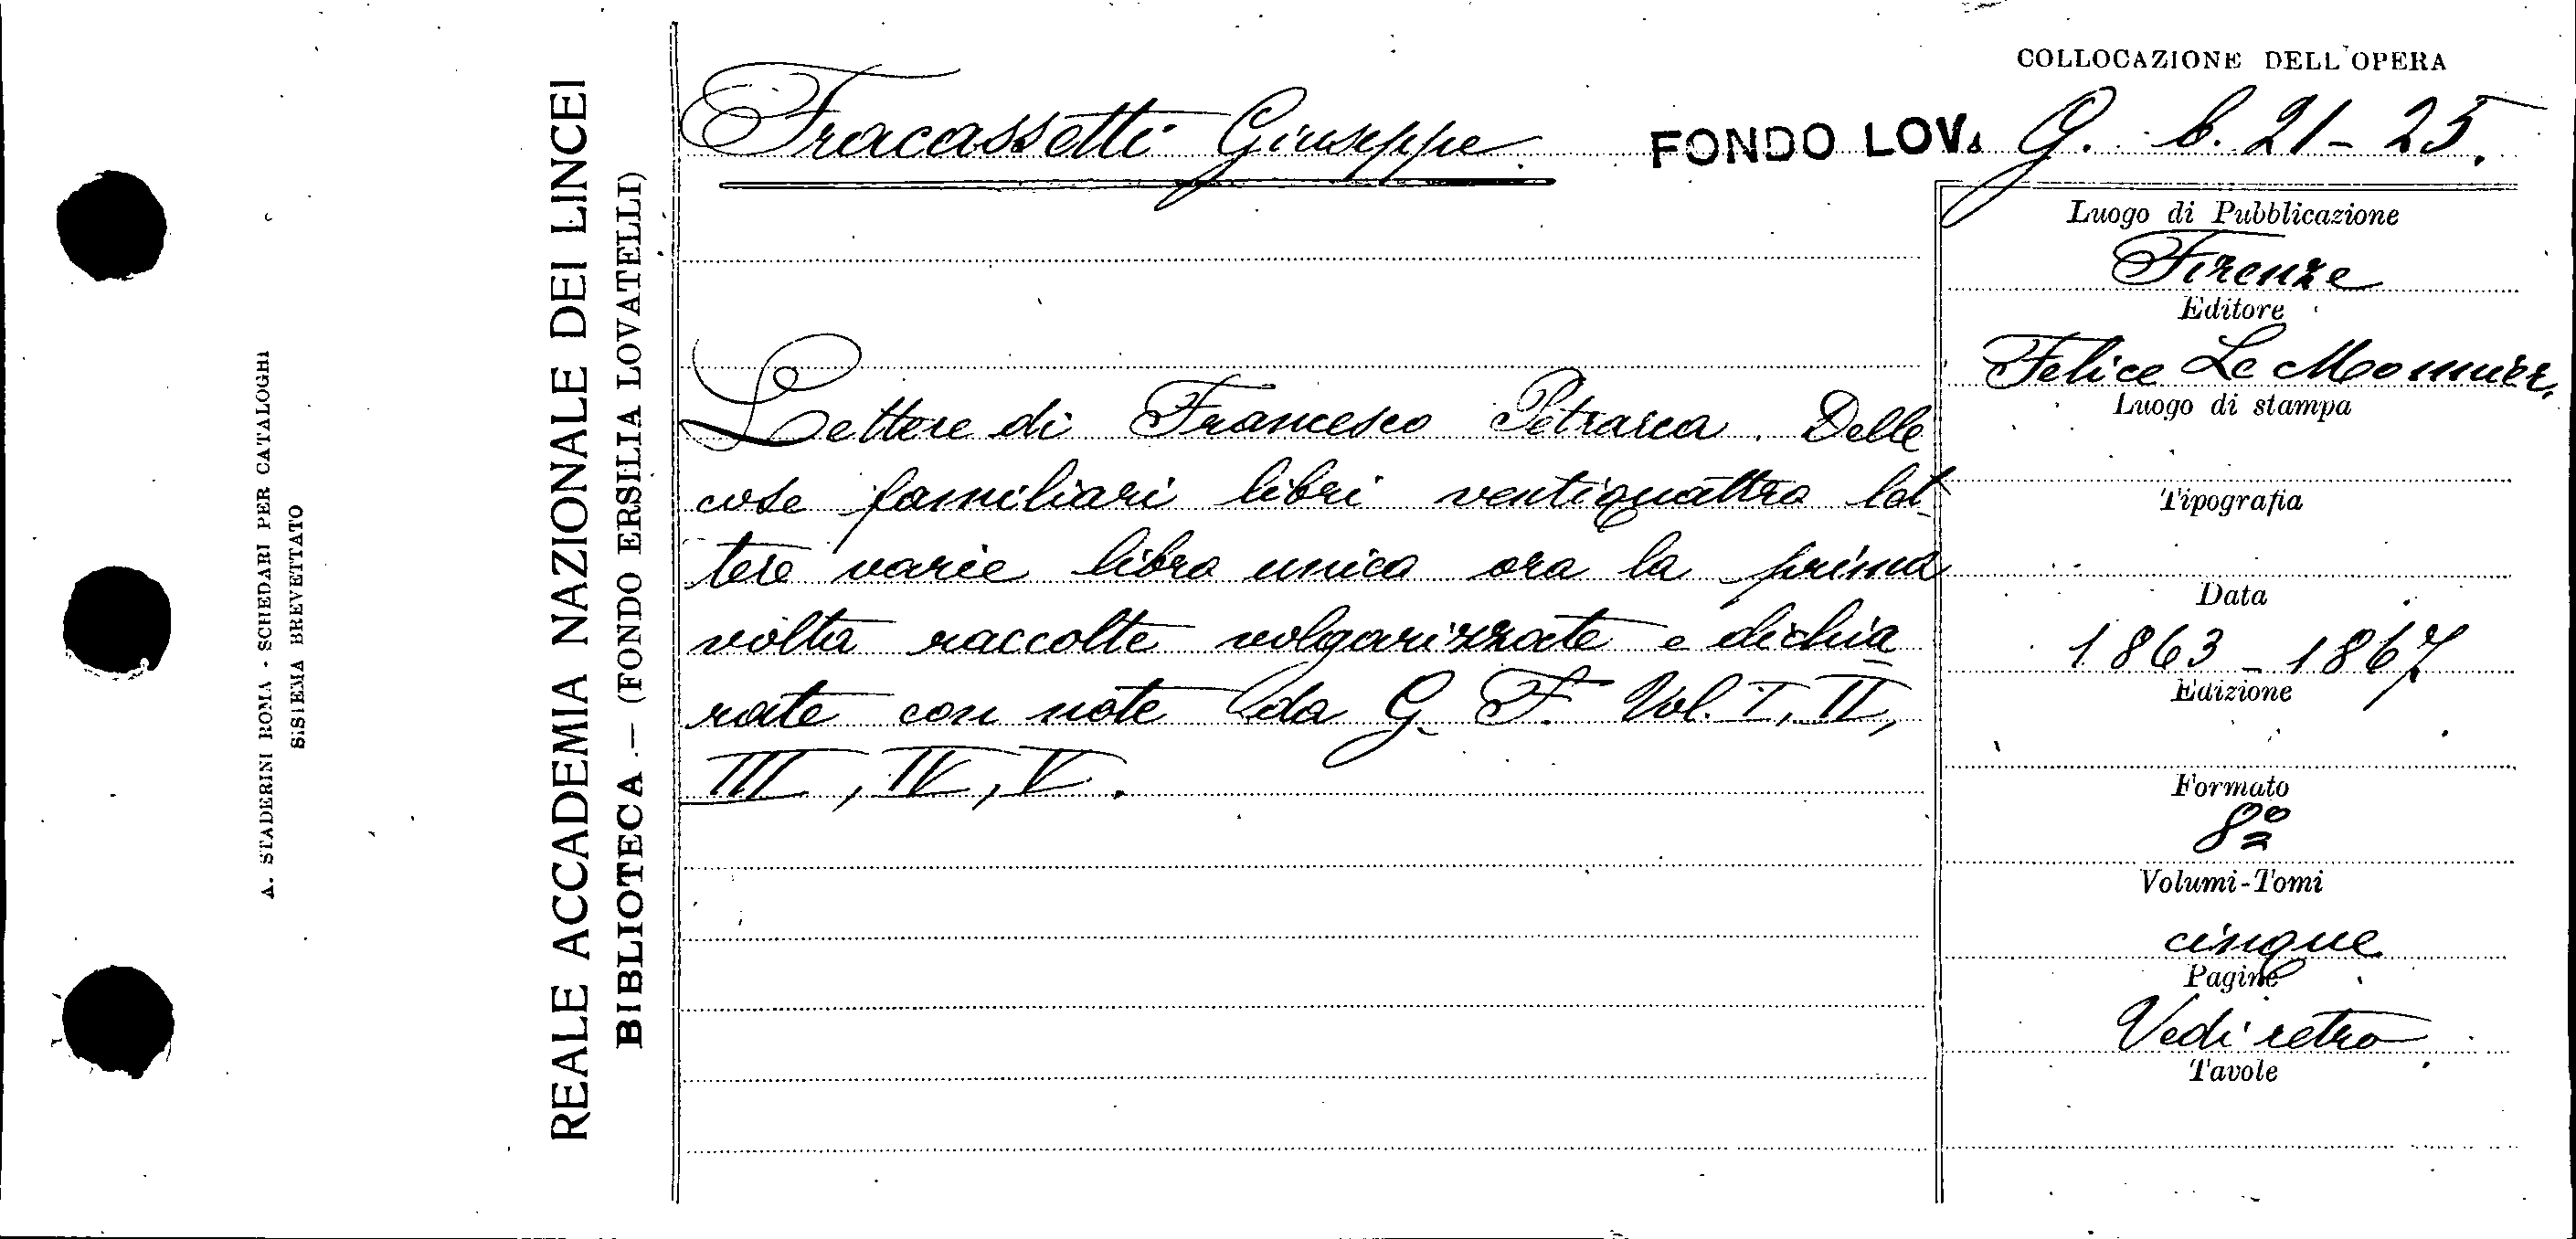 A. STADERINI ROMA - SCHEDARI PER CATALOGHI
SISTEMA BREVETTATO
REALE ACCADEMIA NAZIONALE DEI LINCEI
BIBLIOTECA. — (FONDO ERSILIA LOVATELLI)
Fracassetti Giuseppe.
COLLOCAZIONE DELL'OPERA
FONDO LOV. G. b. 21-25.
Lettere di Francesco Petrarca. Delle
cose familiari libri ventiquattro let-
tere varie libro unico ora la prima
volta raccolte volgarizzate e dichia
rate con note da G. F. Vol. I, II,
III, IV, V.
Luogo di Pubblicazione
Firenze
Editore
Felice Le Monnier.
Luogo di stampa
Tipografia
Data
1863-1867
Edizione
Formato
8º
Volumi-Tomi
cinque
Pagine
Vedi retro
Tavole